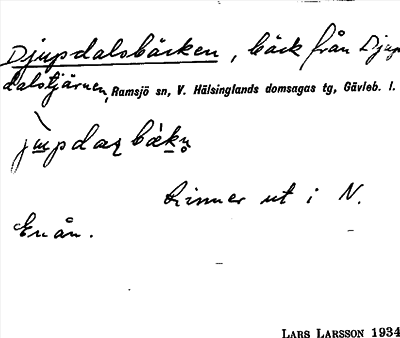 Djupdalsbäcken, bäck från Djup
dalstjärnen, Ramsjö sn, V. Hälsinglands domsagas tg, Gävleb. l.
Rinner ut i N.
Enån.
LARS LARSSON 1934